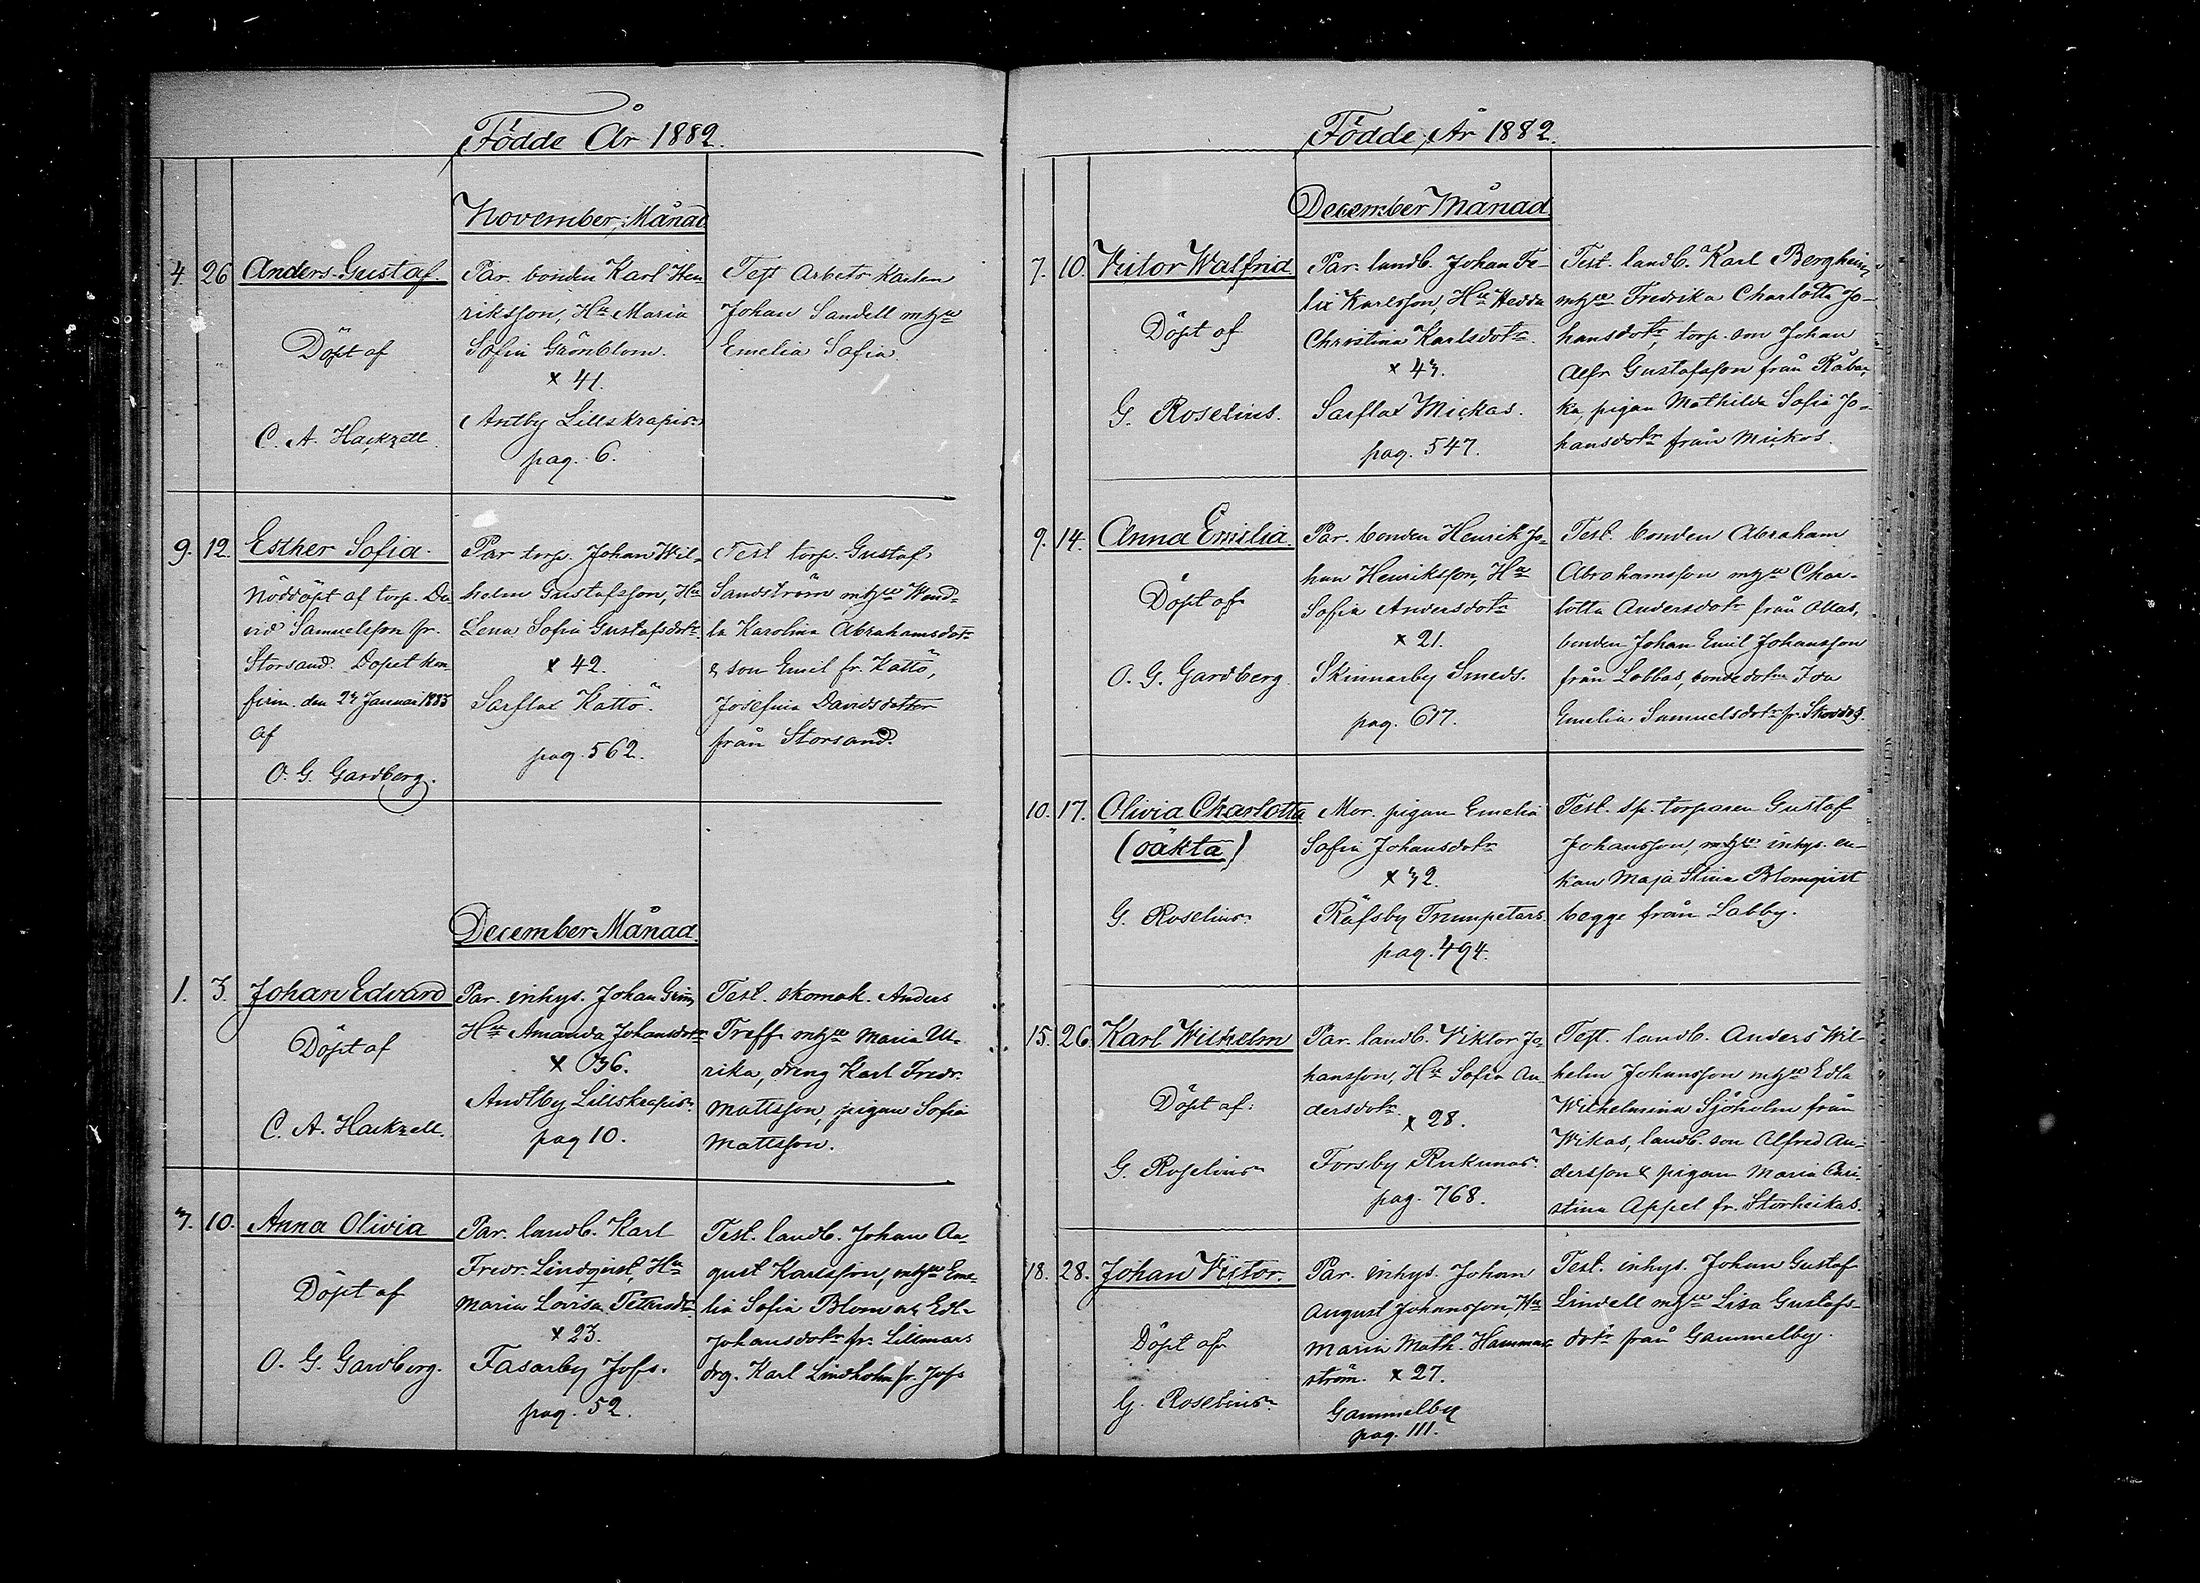 Födde År 1882.
November Månad
4. 26 Anders Gustaf
Döpt af
C. A. Hackzell.
Par. bonden Karl Hen-
riksson, Hu Maria
Sofia Grönblom.
x 41.
Antby Lillskrapis
pag. 6.
Test Arbets karlen
Johan Sandell m hu
Emelia Sofia.
9. 12. Esther Sofia.
Nöddöpt af torp. Da-
vid Samuelsson fr.
Storsand. Dopet kon
firm. den 27 Januari 1883
af
O. G. Gardberg.
Par torp. Johan Wil-
helm Gustafsson, Hu
Lena Sofia Gustafsdotr.
x 42.
Sarflax Kattö.
pag. 562.
Test torp. Gustaf
Sandström m hu Wend-
la Karolina Abrahamsdotr
& son Emil fr. Kattö,
Josefina Davidsdotter
från Storsand.
December Månad.
1. 3. Johan Edvard
Döpt af
C. A. Hackzell.
Par. inhys. Johan
Hu Amanda Johansdotr
x 36.
Andtby Lillskrapis.
pag 10.
Test. skomak. Anders
Treff m hu Maria Ul-
rika, dreng Karl Fredr.
Mattsson, pigan Sofia
Mattsson.
7. 10. Anna Olivia
Döpt af
O. G. Gardberg.
Par. landb. Karl
Fredr. Lindqvist, Hu
Maria Lovisa Petersdr.
x 23.
Fasarby Jofs.
pag. 52.
Test. landb. Johan Au-
gust Karlsson, m hu Eme-
lia Sofia Blom
Johansdotr fr. Lillmars
drg. Karl Lindholm fr. Jofs
Födde År 1882.
December Månad
7. 10. Victor Walfrid
Döpt af
G. Roselius.
Par. landb. Johan Fe-
lix Karlsson, Hu Hedda
Christina Karlsdotr.
x 43.
Sarflax Mickas.
pag. 547.
Test. landb. Karl Bergheim
m hu Fredrika Charlotta Jo-
hansdotr, torp. son Johan
Alfr Gustafsson från Råba-
ka, pigan Mathilda Sofia Jo-
hansdotr från Mickos.
9. 14. Anna Emilia.
Döpt af
O. G. Gardberg
Par. bonden Henrik Jo-
han Henriksson, Hu
Sofia Andersdotr
x 21.
Skinnarby Smeds.
pag. 617.
Test. bonden Abraham
Abrahamsson m hu Char-
lotta Andersdotr från Allas,
bonden Johan Emil Johansson
från Lobbas, bondedotr Ida
Emelia Samuelsdotr fr.
10. 17. Olivia Charlotta
(oäkta)
G. Roselius
Mor. pigan Emelia
Sofia Johansdotr
x 32.
Räfsby Trumpetars.
pag. 494.
Test. sp. torparen Gustaf
Johansson, m hu inhys. en-
kan Maja Stina Blomqvist
begge från Labby.
15. 26. Karl Wilhelm
Döpt af:
G. Roselius
Par. landb. Viktor Jo-
hansson, Hu Sofia An-
dersdotr.
x 28.
Forsby Rukunas.
pag. 768.
Test. landb. Anders Wil-
helm Johansson m hu Edla
Wilhelmina Sjöholm från
Wikas, landb. son Alfred An-
dersson & pigan Maria Chri-
stina Appel fr. Storheikas.
18. 28. Johan Victor.
Döpt af
G. Roselius
Par. inhys. Johan
August Johansson, Hu
Maria Math. Hammar-
ström. x 27.
Gammelby
pag. 111.
Test. inhys. Johan Gustaf
Lindell m hu Lisa Gustafs-
dotr från Gammelby.